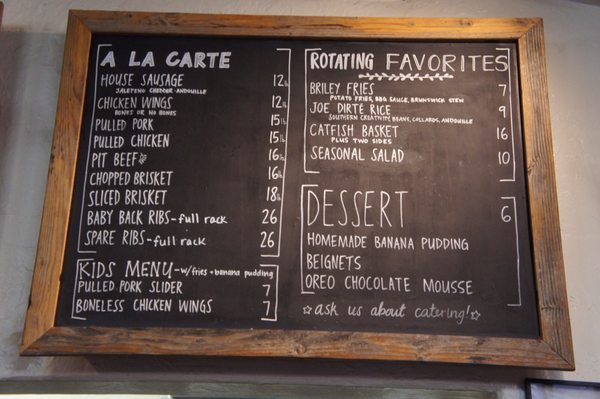 A LA CARTE
HOUSE SAUSAGE 12 lb
JALEPENO CHEDDAR · ANDOUILLE
CHICKEN WINGS 12 lb
BONES OR NO BONES
PULLED PORK 15 lb
PULLED CHICKEN 15 lb
PIT BEEF 16 lb
CHOPPED BRISKET 16 lb
SLICED BRISKET 18 lb
BABY BACK RIBS - full rack 26
SPARE RIBS - full rack 26
KIDS MENU - w/ fries + banana pudding
PULLED PORK SLIDER 7
BONELESS CHICKEN WINGS 7
ROTATING FAVORITES
BRILEY FRIES 7
POTATO FRIES, BBQ SAUCE, BRUNSWICK STEW
JOE DIRTE RICE 9
SOUTHERN CREATIVITY, BEANS, COLLARDS, ANDOUILLE
CATFISH BASKET 16
PLUS TWO SIDES
SEASONAL SALAD 10
DESSERT 6
HOMEMADE BANANA PUDDING
BEIGNETS
OREO CHOCOLATE MOUSSE
☆ask us about catering!☆